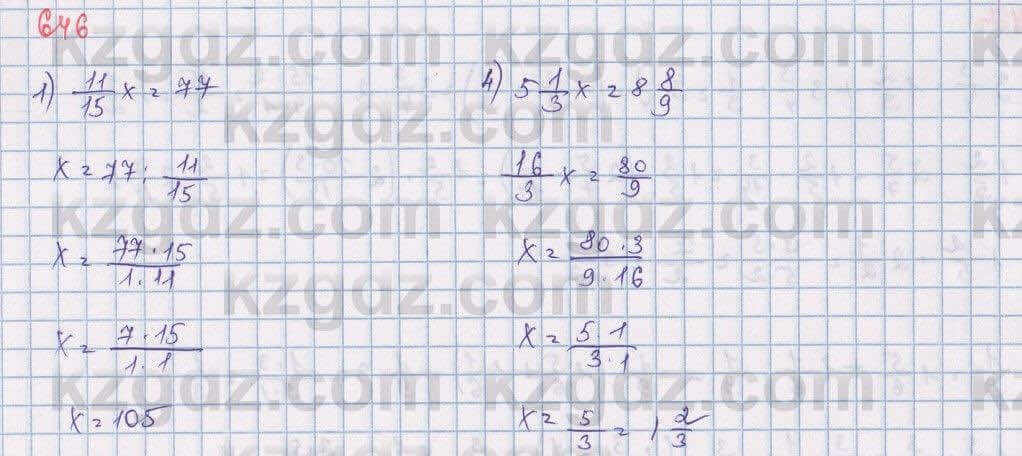 646
1) 11/15 x = 77
x = 77 : 11/15
x = 77 · 15 / 1 · 11
x = 7 · 15 / 1 · 1
x = 105
4) 5 1/3 x = 8 8/9
16/3 x = 80/9
x = 80 · 3 / 9 · 16
x = 5 · 1 / 3 · 1
x = 5/3 = 1 2/3
kzgdz.com
kzgdz.com
kzgdz.com
kzgdz.com
kzgdz.com
kzgdz.com
kzgdz.com
kzgdz.com